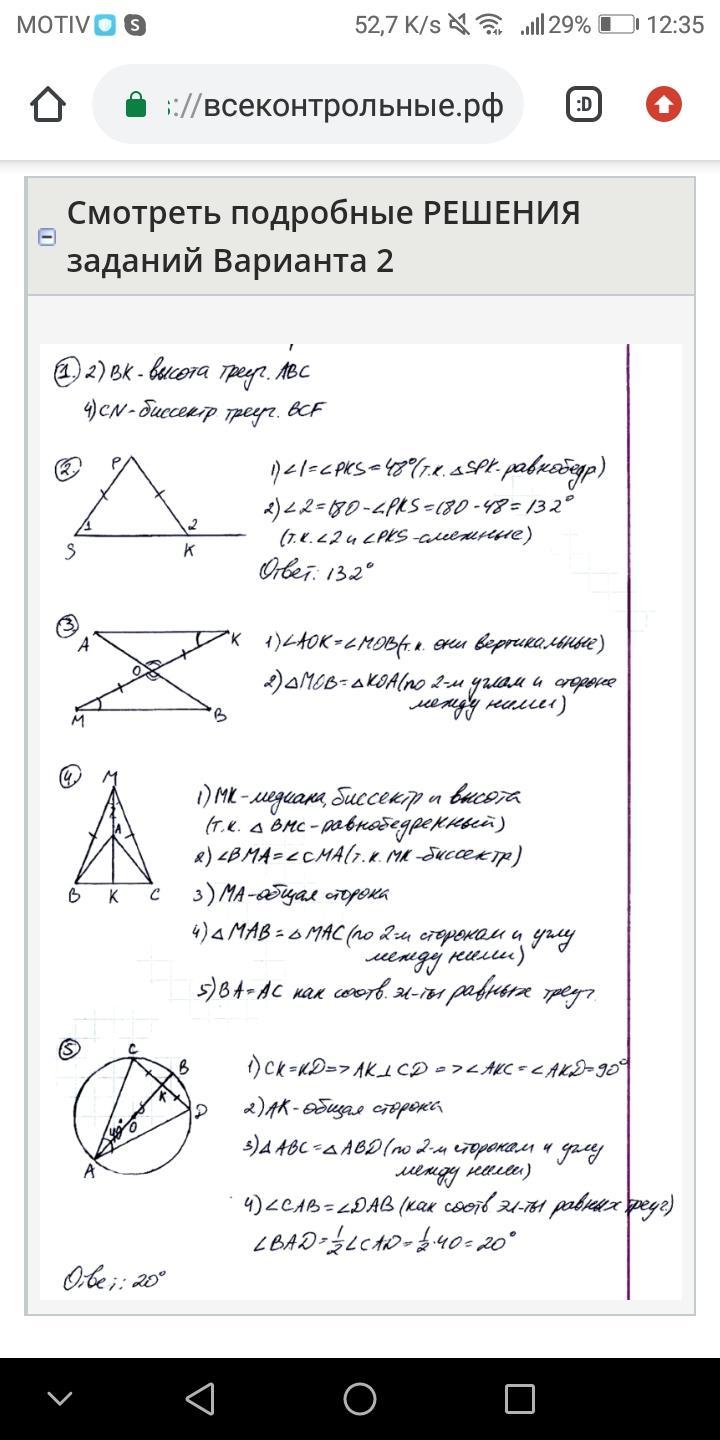 MOTIV S 52,7 K/s 29% 12:35
://всеконтрольные.рф :D
Смотреть подробные РЕШЕНИЯ
заданий Варианта 2
1. 2) BK - высота треуг. ABC
4) CN - биссектр треуг. BCF
2. P 1 2 S K
1) ∠1 = ∠PKS = 48° (т.к. △SPK - равнобедр)
2) ∠2 = 180 - ∠PKS = 180 - 48 = 132°
(т.к. ∠2 и ∠PKS - смежные)
Ответ: 132°
3 A K O M B
1) ∠AOK = ∠MOB (т.к. они вертикальные)
2) △MOB = △KOA (по 2-м углам и стороне
между ними)
4 M A B K C
1) MK - медиана, биссектр и высота
(т.к. △ BMC - равнобедренный)
2) ∠BMA = ∠CMA (т.к. MK - биссектр)
3) MA - общая сторона
4) △ MAB = △ MAC (по 2-м сторонам и углу
между ними)
5) BA = AC как соотв. эл-ты равных треуг.
5 C B K D O 40° A
1) CK = KD => AK ⊥ CD => ∠AKC = ∠AKD = 90°
2) AK - общая сторона
3) △ABC = △ABD (по 2-м сторонам и углу
между ними)
4) ∠CAB = ∠DAB (как соотв эл-ты равных треуг)
∠BAD = 1/2 ∠CAD = 1/2 · 40 = 20°
Ответ: 20°